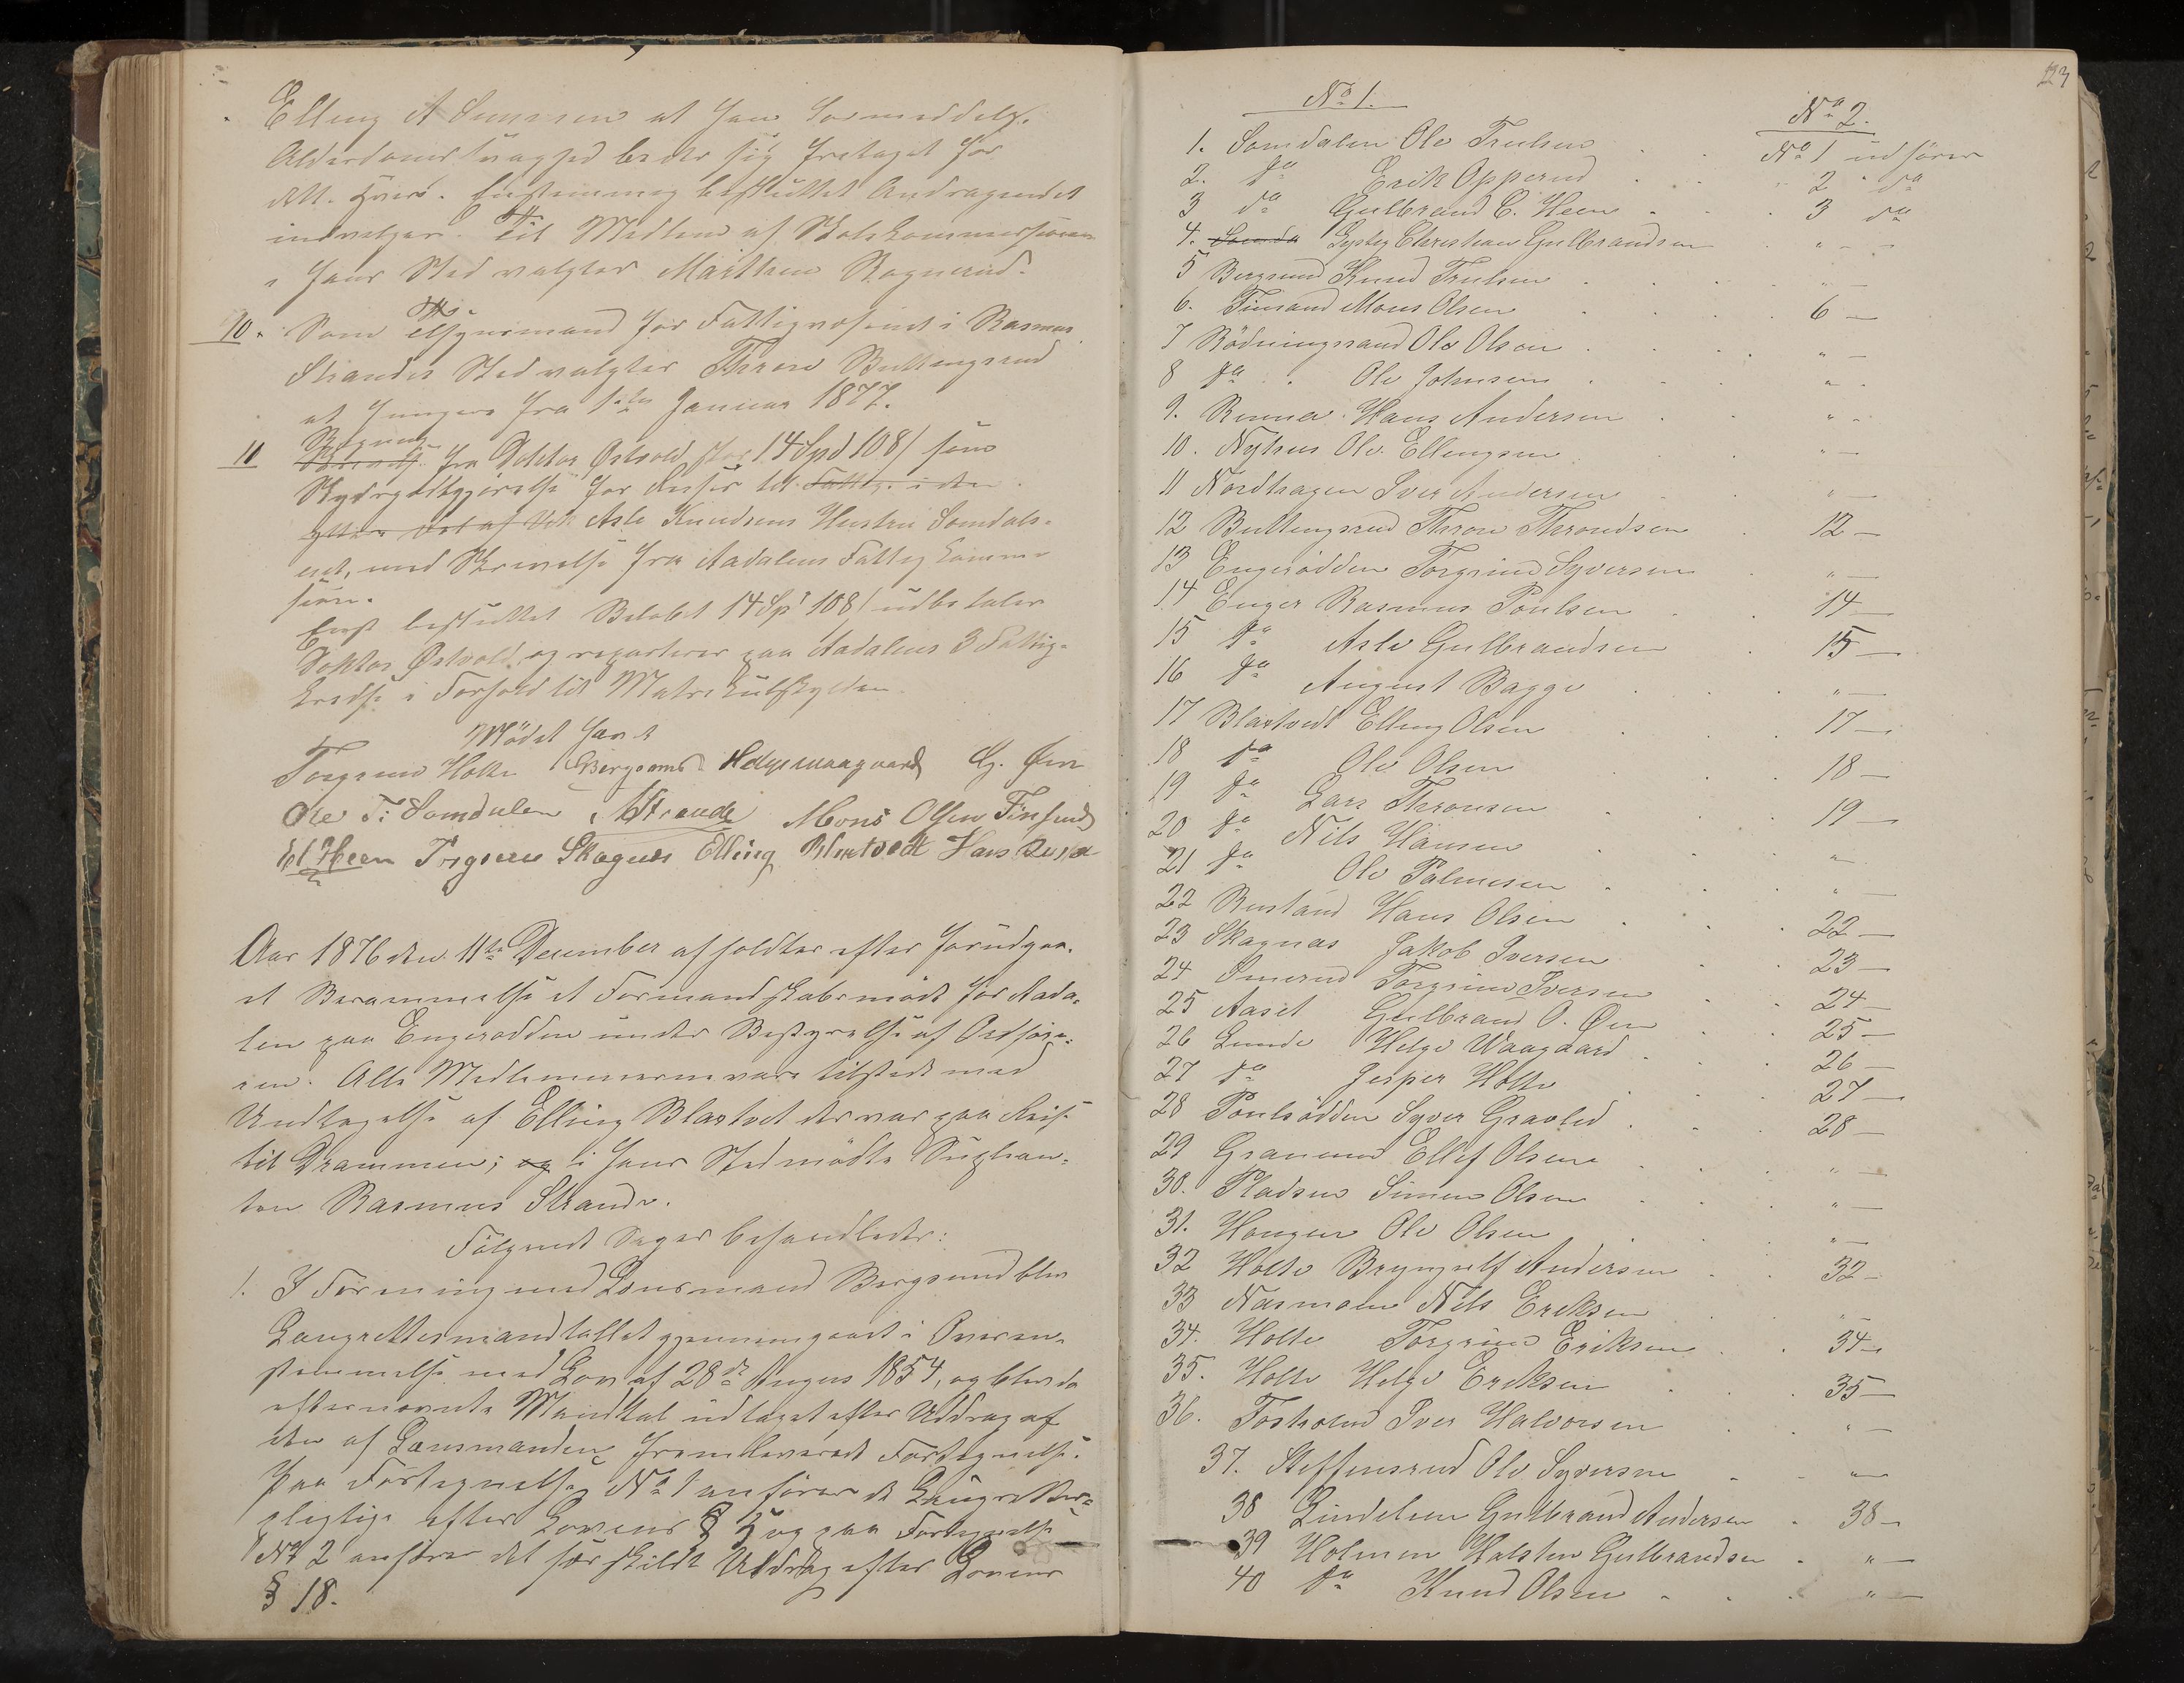 Elling A Sunersen at han formedelst
Alderdomssvaghed beder sig fritaget for
dette Hverv. Enstemmig besluttet Andragendet
indvilget. Til Medlem af Skolekommissionen
i hans Sted valgtes Marthin Rognerud.
10. Som Tilsynsmand for Fattigvæsenet i Rasmus
Strandes Sted valgtes Thron Bullingsrud
at fungere fra 1ste Januar 1877.
11 Regning fra Doktor Østvold stor 14 Spd 108 / som
Skydsgodtgjørelse for Reiser til Fattige i den
ytt Del af Asle Knudsens Hustru Somdals-
eiet, med Skrivelse fra Aadalens Fattigkommi-
sion.
Enst besluttet Beløbet 14 Spd 108 / udbetales
Doktor Østvold og reparteres paa Aadalens 3 Fattig-
kredse i Forhold til Matrikulskylden.
Mødet hævet
Torgrim Holte Bergsund Helge waagaard G. Øen
Ole T: Somdalen RStrande Mons Olsen Finsand
El Heen Torgrim Skagnæs Elling Blaktvedt Hans Runa
Aar 1876 den 11te December afholdtes efter forudgaa-
et Berammelse et Formandskabsmøde for Aada-
len paa Engerodden under Bestyrelse af Ordføre-
ren. Alle Medlemmerne vare tilstede med
Undtagelse af Elling Blaktvet der var paa Reise
til Drammen; og i hans Sted mødte Suplean-
ten Rasmus Strande.
Følgende Sager behandledes:
1. I Forening med Lensmand Bergsund blev
Laugrettesmandtallet gjennemgaaet i Overens-
stemmelse med Lov af 28de August 1854, og blev da
efternævnte Mandtal udtaget efter Uddrag af
den af Lensmanden fremleverede Fortegnelse.
Paa Fortegnelse No 1 anføres de Laugrettes-
pligtige efter Lovens § 5 og paa Fortegnelse
No 2 anføres det særskilte Uddrag efter Lovens
§ 18.
23
No 1. No 2.
1. Somdalen Ole Trulsen No 1 udføres
2. do Erik Opperud 2 " do
3 do Gulbrand E. Heen 3 do
4. Somda Christian Gulbrandsen " -
5 Bergsund Knud Trulsen " -
6. Finsand Mons Olsen 6 -
7 Rödningsand Ole Olsen " -
8 do Ole Johnsen " -
9. Runna Hans Andersen " -
10. Nyhus Ole Ellingsen " -
11 Nordhagen Iver Andersen " -
12 Bullingsrud Thron Throndsen 12 -
13 Engerodden Torgrim Syversen " -
14 Enger Rasmus Poulsen 14 -
15 do Asle Gulbrandsen 15 -
16 do August Bagge " -
17 Blaktvedt Elling Olsen 17 -
18 do Ole Olsen 18 -
19 do Lars Thronsen 19 -
20 do Nils Hansen " -
21 do Ole Palmesen " -
22 Rustand Hans Olsen 22 -
23 Skagnæs Jakob Iversen 23 -
24 Smerud Torgrim Iversen 24 -
25 Aaset Gulbrand O. Øen 25 -
26 Lunde Helge Waagaard 26 -
27 do Jesper Holte 27 -
28 Poulsodden Syver Gravlid 28 -
29 Granum Ellef Olsen " -
30. Pladsen Simen Olsen " -
31. Haugen Ole Olsen " -
32 Holte Bryngelf Andersen 32 -
33 Næsmoen Nils Eriksen " -
34. Holte Torgrim Eriksen 34 -
35. Holte Helge Eriksen 35 -
36. Fosholm Iver Halvorsen " -
37. Steffensrud Ole Syversen " -
38 Lindelien Gulbrand Andersen 38 -
39 Holmen Halsten Gulbrandsen " -
40 do Knud Olsen " -